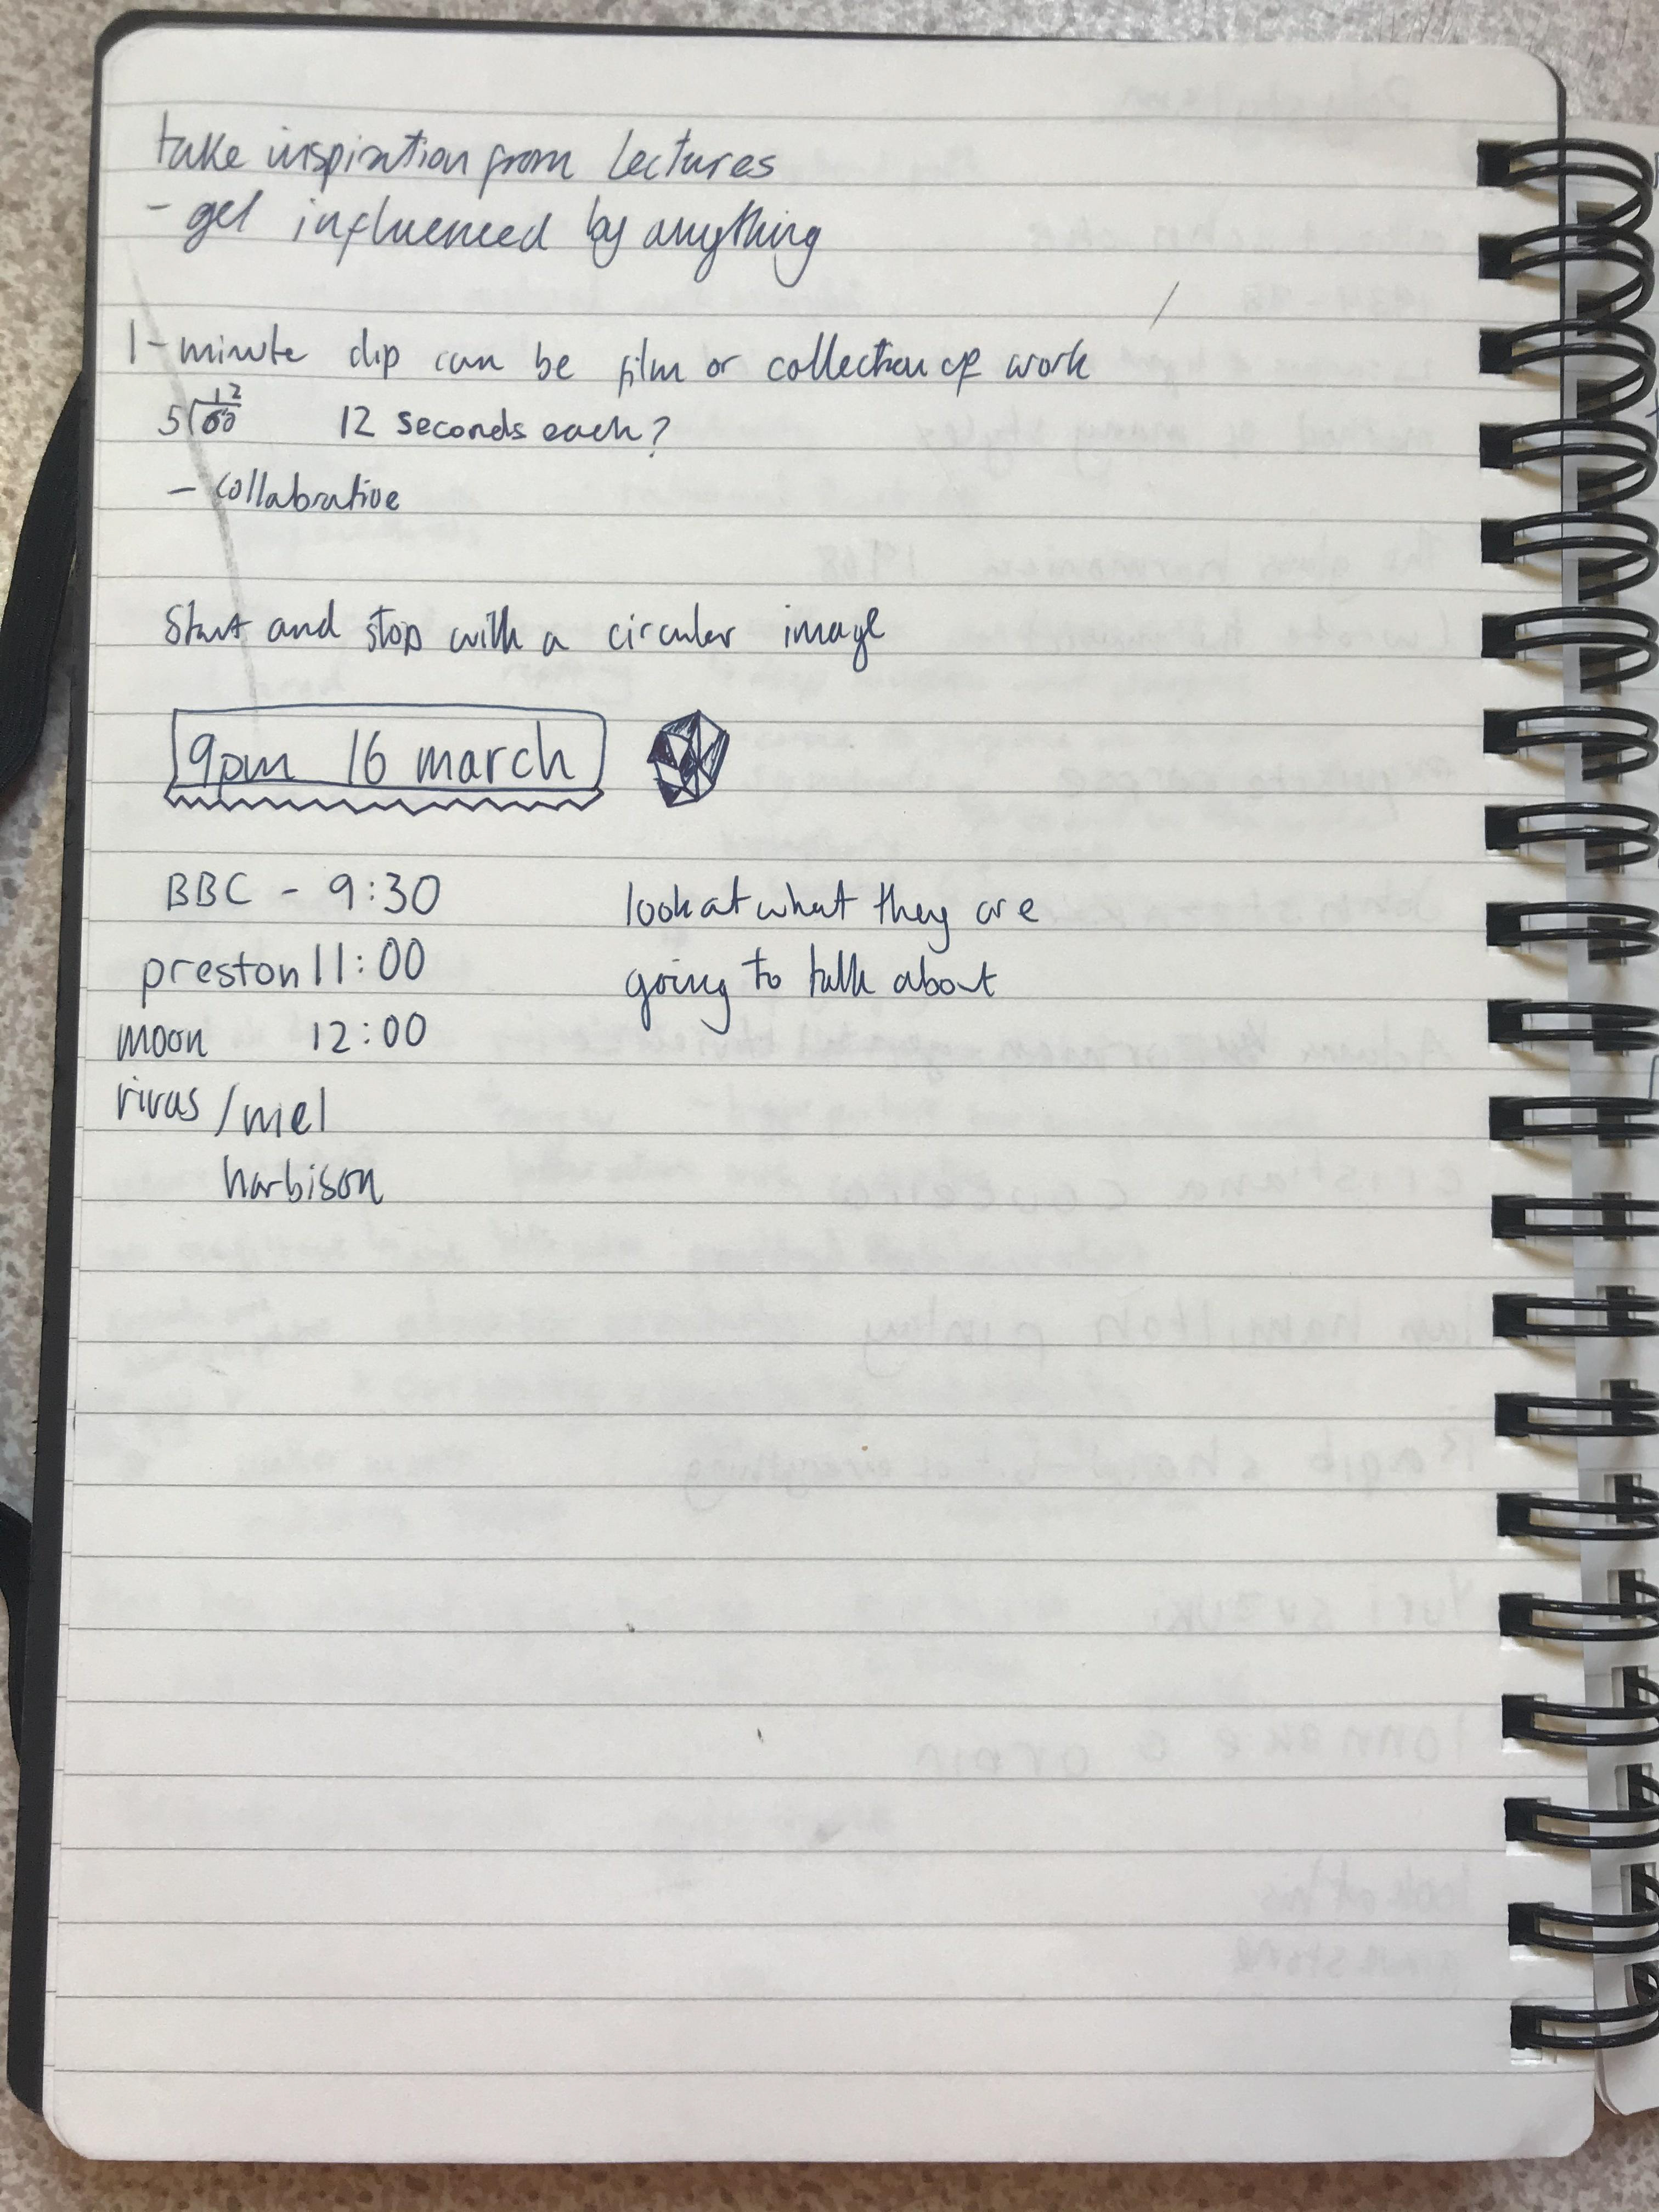 take inspiration from lectures
- get influenced by anything
1-minute clip can be film or collection of work
12
5 60 12 seconds each?
- collabrative
Start and stop with a circular image
9pm 16 march
BBC - 9:30
preston 11:00
moon 12:00
rivas / niel
harbison
look at what they are
going to talk about